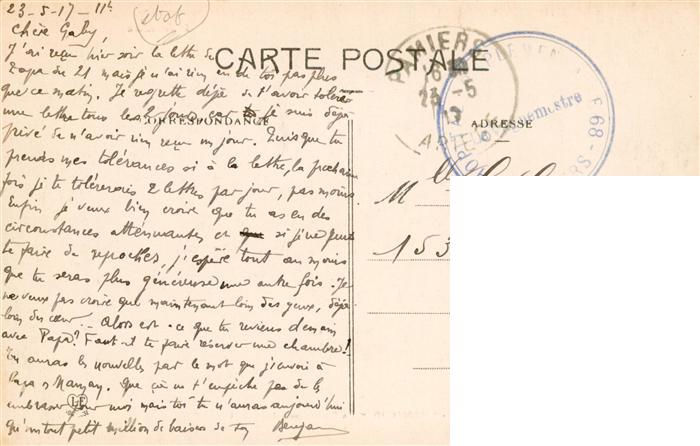 23-5-17-11h
Chère Gaby,
J'ai reçu hier soir la lettre de
Papa du 21 mais je n'ai rien eu de toi pas plus
que ce matin. Je regrette déjà de t'avoir toléré
une lettre tous les 2 jours car je suis déjà
privé de n'avoir rien reçu un jour. Puisque tu
prends mes tolérances si à la lettre, la prochaine
fois je te tolérerais 2 lettres par jour, pas moins.
Enfin je veux bien croire que tu as eu des
circonstances atténuantes et si je ne peux
te faire de reproches, j'espère tout au moins
que tu seras plus généreuse une autre fois. Je
ne veux pas croire que maintenant loin des yeux, déjà
loin du cœur. - Alors est-ce que tu reviens demain
avec Papa? Faut-il te faire réserver une chambre!
Tu auras les nouvelles par le mot que j'envoie à
Papa & Maman. Que ça ne t'empêche pas de les
embrasser pour moi mais toi tu n'auras aujourd'hui
qu'un tout petit million de baisers de ton
CARTE POSTALE
CORRESPONDANCE
ADRESSE
PAMIERS
23-5
17
ARIEGE
F 68
Mlle
153
LF